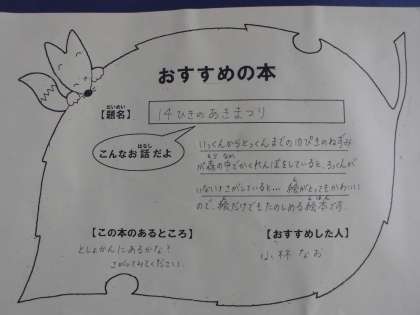 おすすめの本
だいめい
【題名】
14ひきのあきまつり
はなし
こんなお話だよ
いっくんからとっくんまでの10ぴきのねずみ
が森の中でかくれんぼをしていると、ろっくんが
いない!さがしていると… 絵がとってもかわいい
ので、絵だけでもたのしめる絵本です。
【この本のあるところ】
としょかんにあるかな?
さがしてみてください。
【おすすめした人】
小林 なお